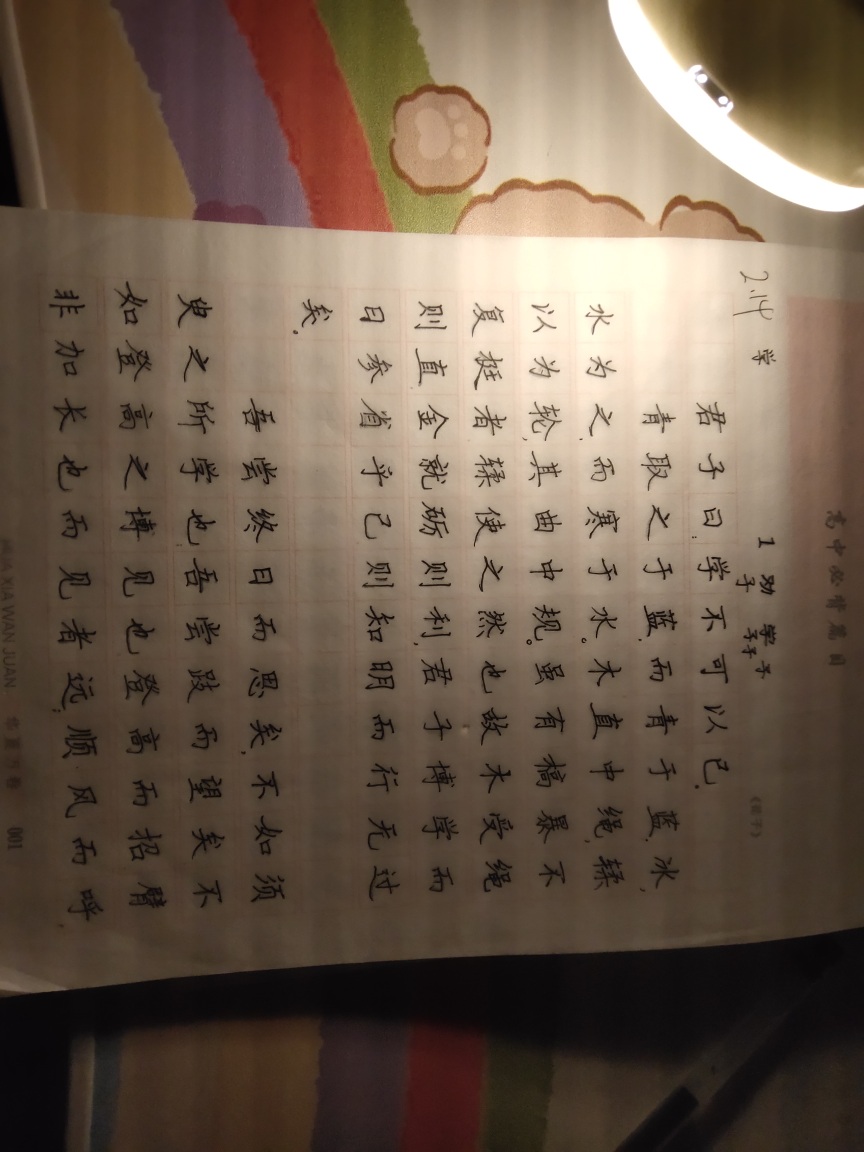 高中必背篇目
2.14 学
1 劝学 子
子 子子
《荀子》
君子曰:学不可以已.
青取之于蓝,而青于蓝,冰,
水为之,而寒于水。木直中绳,輮
以为轮,其曲中规。虽有槁暴不
复挺者輮使之然也故木受绳
则直金就砺则利,君子博学而
日参省乎己则知明而行无过
矣.
吾尝终日而思矣,不如须
臾之所学也;吾尝跂而望矣不
如登高之博见也登高而招臂
非加长也而见者远;顺风而呼
HUA XIA WAN JUAN 华夏万卷 001